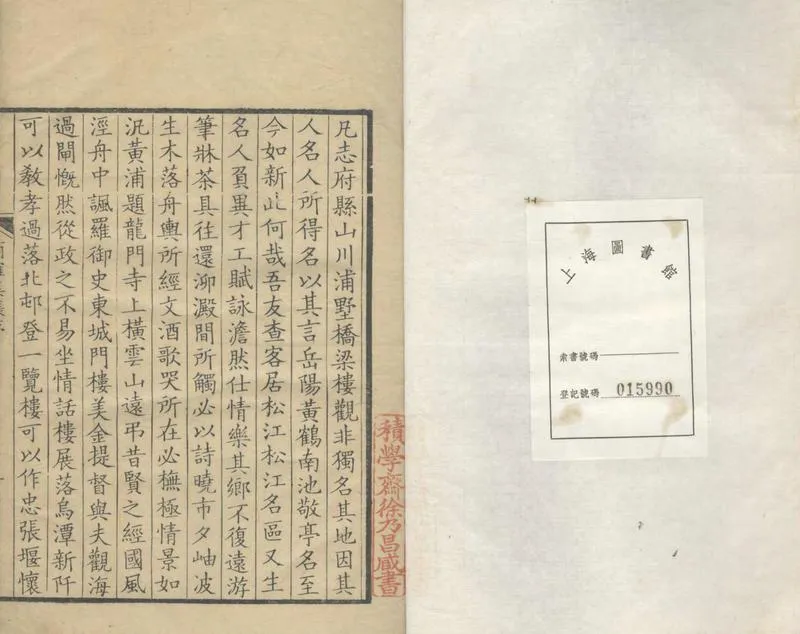 凡志府縣山川浦墅橋梁樓觀非獨名其地因其
人名人所得名以其言岳陽黃鶴南池敬亭名至
今如新此何哉吾友查客居松江松江名區又生
名人負異才工賦詠澹然仕情樂其鄉不復遠游
筆牀茶具往還泖澱間所觸必以詩曉市夕岫波
生木落舟輿所經文酒歌哭所在必橅極情景如
汎黃浦題龍門寺上橫雲山遠弔昔賢之經國風
涇舟中諷羅御史東城門樓美金提督與夫觀海
過閘慨然從政之不易坐情話樓展落烏潭新阡
可以敎孝過落北邨登一覽樓可以作忠張堰懷
積學齋徐乃昌藏書
上海圖書館
索書號碼
登記號碼 015990